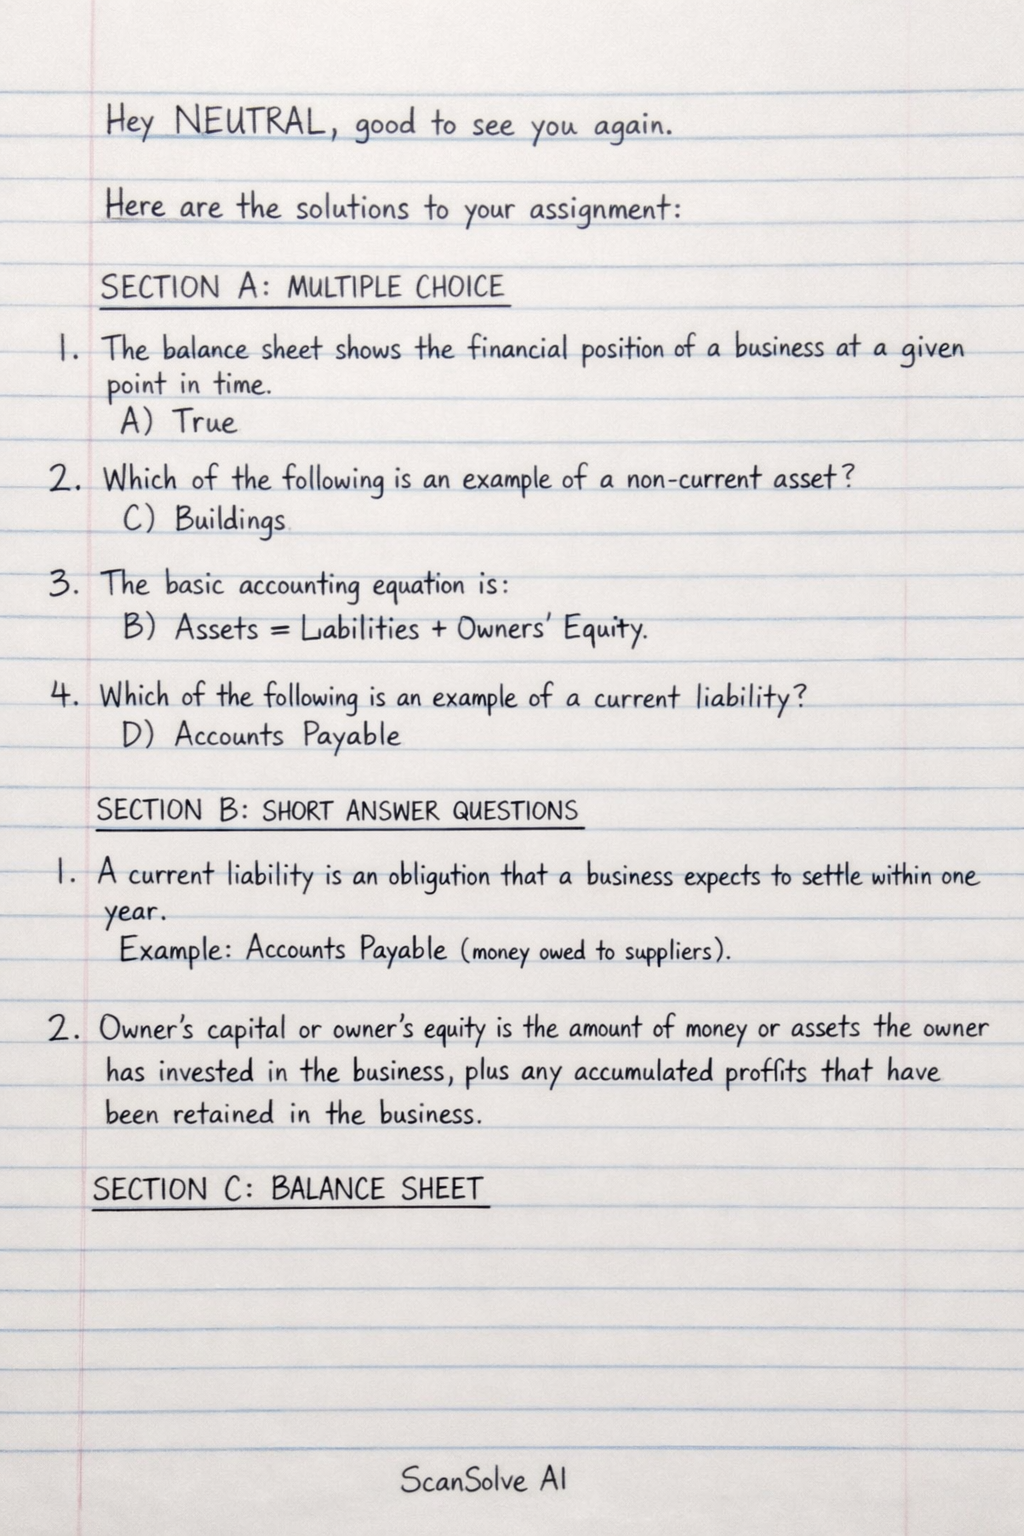 Hey NEUTRAL, good to see you again.
Here are the solutions to your assignment:
SECTION A: MULTIPLE CHOICE
1. The balance sheet shows the financial position of a business at a given
point in time.
A) True
2. Which of the following is an example of a non-current asset?
C) Buildings
3. The basic accounting equation is:
B) Assets = Labilities + Owners' Equity.
4. Which of the following is an example of a current liability?
D) Accounts Payable
SECTION B: SHORT ANSWER QUESTIONS
1. A current liability is an obligution that a business expects to settle within one
year.
Example: Accounts Payable (money owed to suppliers).
2. Owner's capital or owner's equity is the amount of money or assets the owner
has invested in the business, plus any accumulated proffits that have
been retained in the business.
SECTION C: BALANCE SHEET
ScanSolve AI